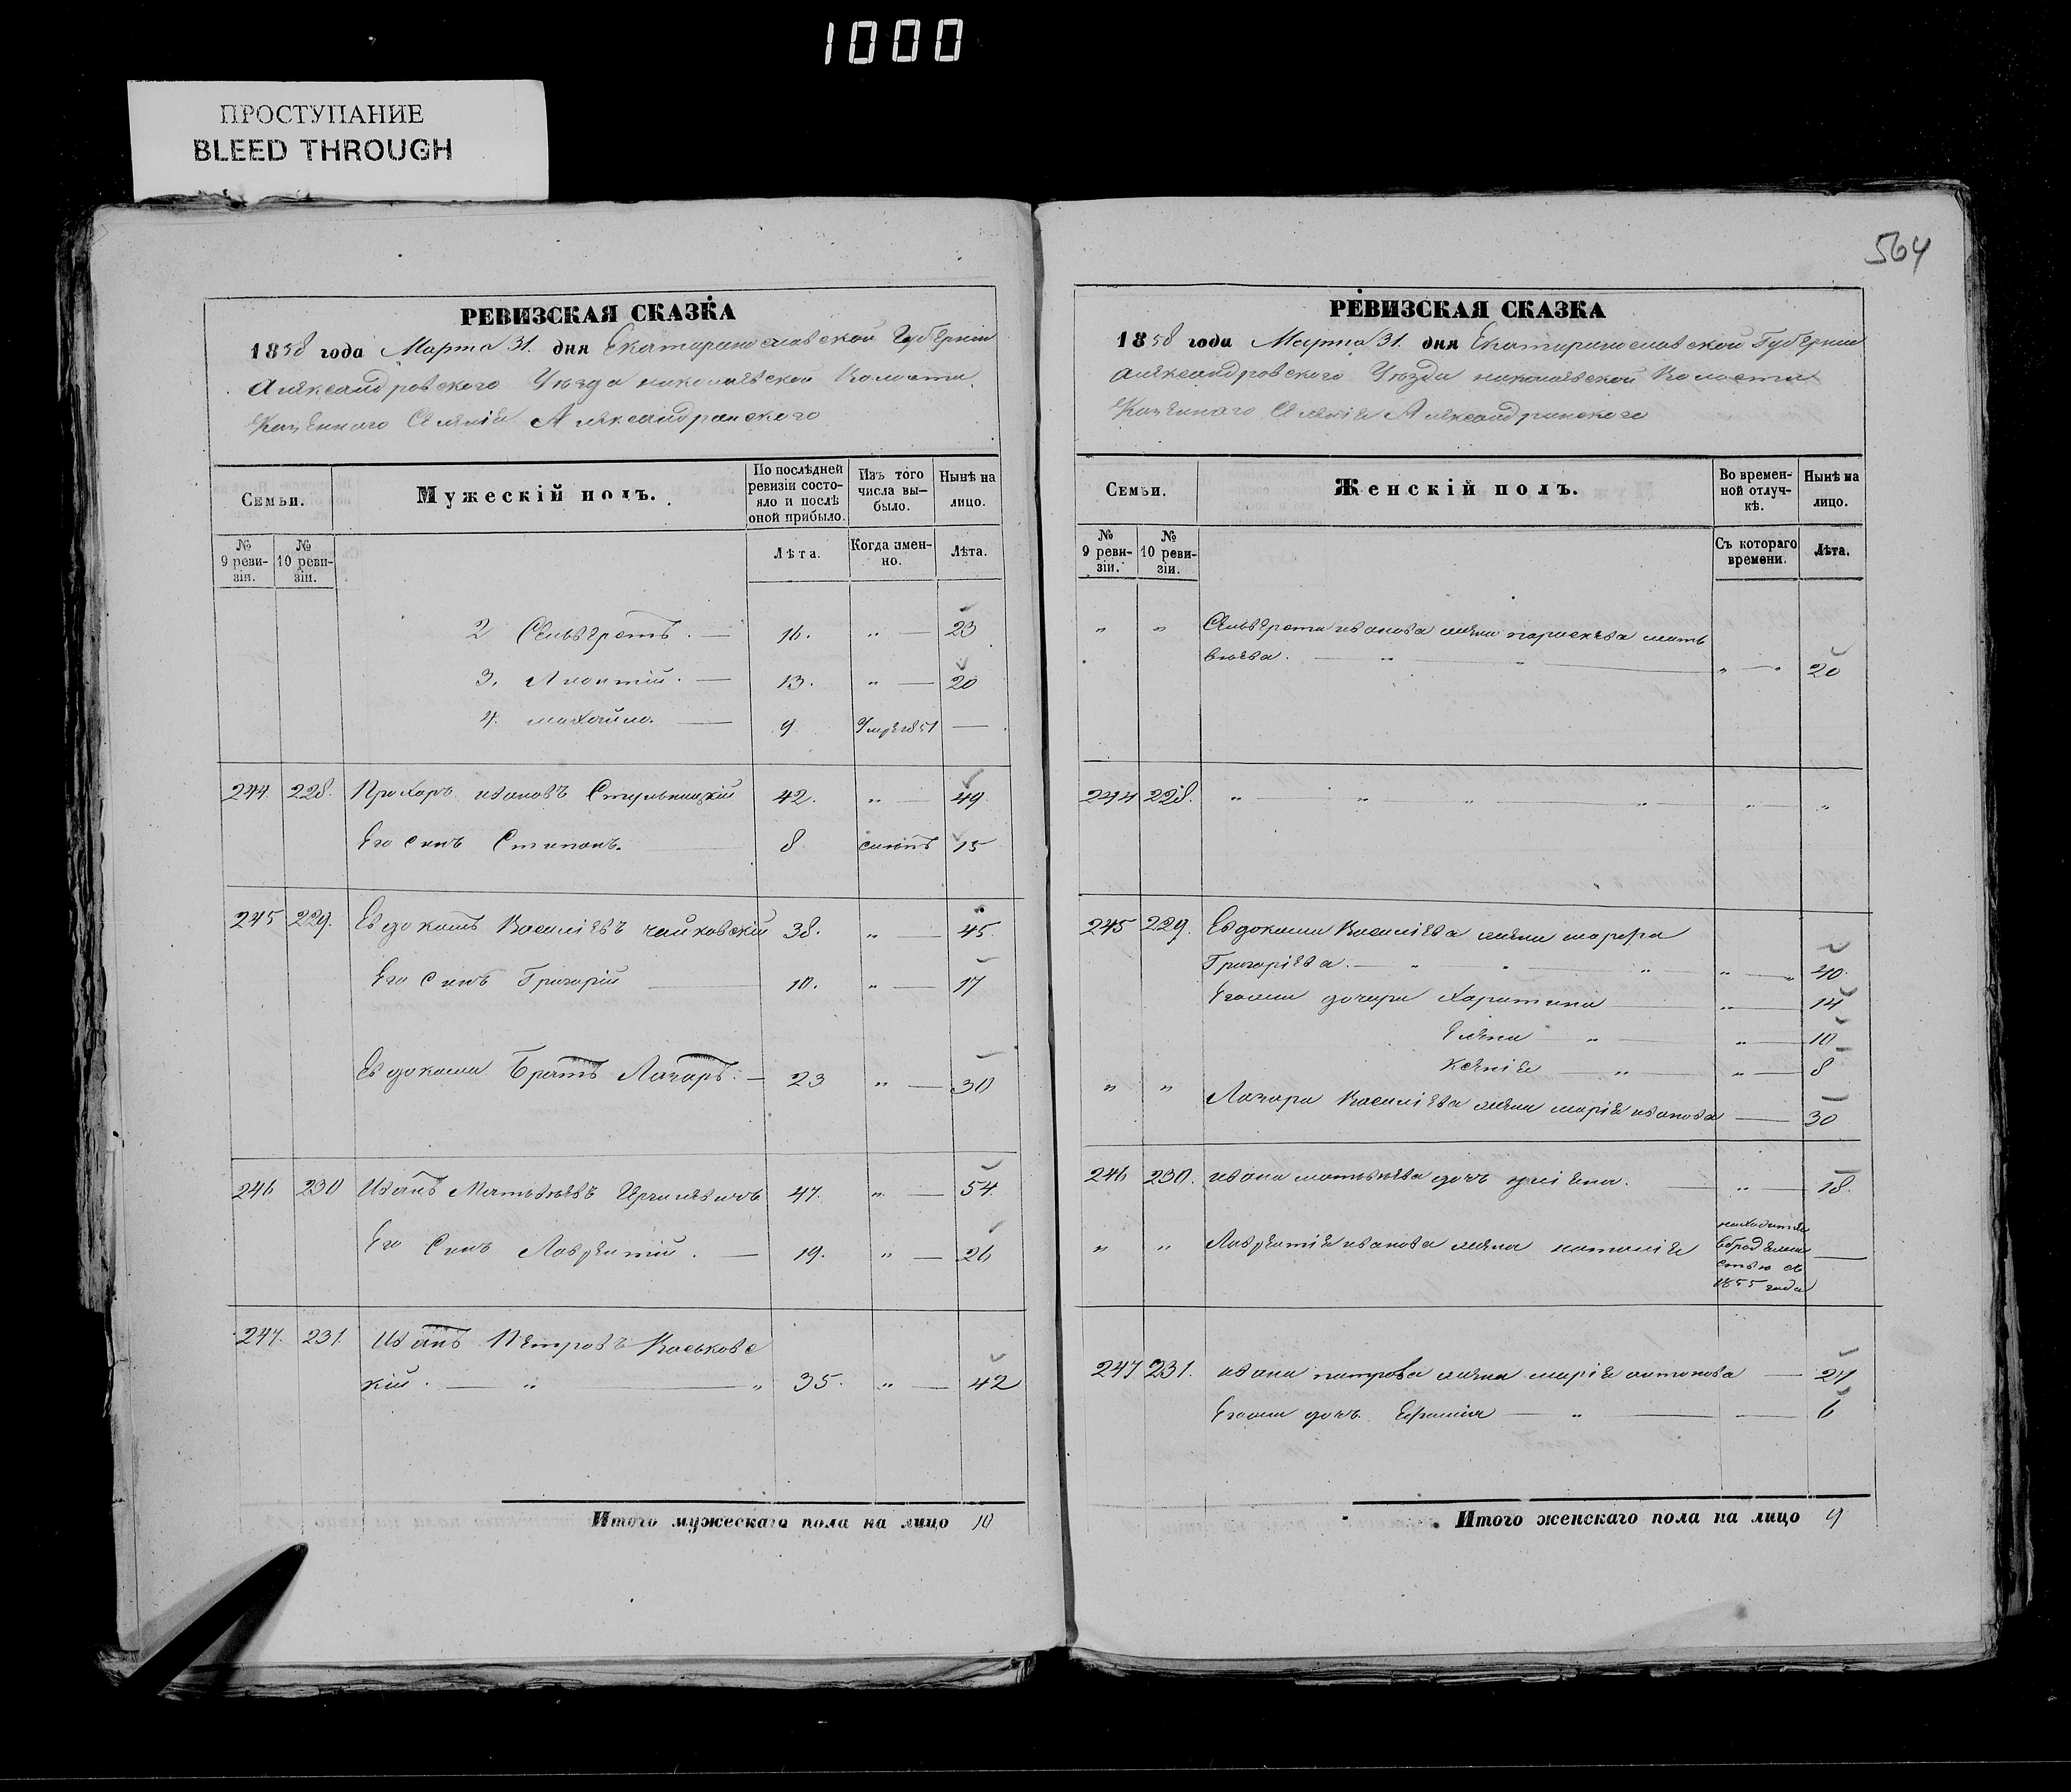 1000
ПРОСТУПАНИЕ
BLEED THROUGH
564
РЕВИЗСКАЯ СКАЗКА
1858 года Марта 31. дня Екатеринославской Губернии
Александровского Уезда николаевской Волости
Казенного Селения Александринского
Семьи.
Мужескій полъ.
По послѣдней ревизіи состояло и послѣ оной прибыло.
Изъ того числа выбыло.
Нынѣ на лицо.
№ 9 ревизіи.
№ 10 ревизіи.
Лѣта.
Когда именно.
Лѣта.
2 Селивестръ. — 16. „ — 23
3. Леонтій. — 13. „ — 20
4. михайло. — 9 Умре 1851 —
244. 228. Прохоръ ивановъ 42. „ — 49.
Его Синъ Степанъ. 8 15
245 229. Евдокимъ Василіевъ чайковскій 38. „ — 45.
Его Синъ Григорій — 10. „ — 17
Евдокима Братъ Лазарь. — 23 „ — 30
246 230 Иванъ Матвѣевъ 47. „ — 54.
Его Синъ Лаврентій. — 19. „ — 26
247. 231. Иванъ Петровъ Васьковс
кій. — „ — „ 35. „ — 42
Итого мужескаго пола на лицо 10
РЕВИЗСКАЯ СКАЗКА
1858 года Марта 31. дня Екатеринославской Губернии
Александровского Уезда николаевской Волости
Казенного Селения Александринского
Семьи.
Женскій полъ.
Во временной отлучкѣ.
Нынѣ на лицо.
№ 9 ревизіи.
№ 10 ревизіи.
Съ котораго времени.
Лѣта.
„ „ иванова жена параскева мать
вѣева. — „ — „ — „ — „ 20
244 228. „ — „ — „ — „ „ — „
245 229. Евдокима Василіева жена марфа
Григоріева. — „ „ — „ „ — „ 40.
Егоже дочери Харитина — „ — 14
Елена — „ — „ — 10
Ксенія — „ „ — 8
„ „ Лазаря Василіева жена марія иванова — 30
246 230. ивана матвѣева дочь — „ — 18.
„ „ Лаврентія иванова жена наталія находится
в брод яжни
ствѣ съ —
1855 года
247 231. ивана петрова жена марія антонова — 27
Егоже дочь — „ — — 6
Итого женскаго пола на лицо 9